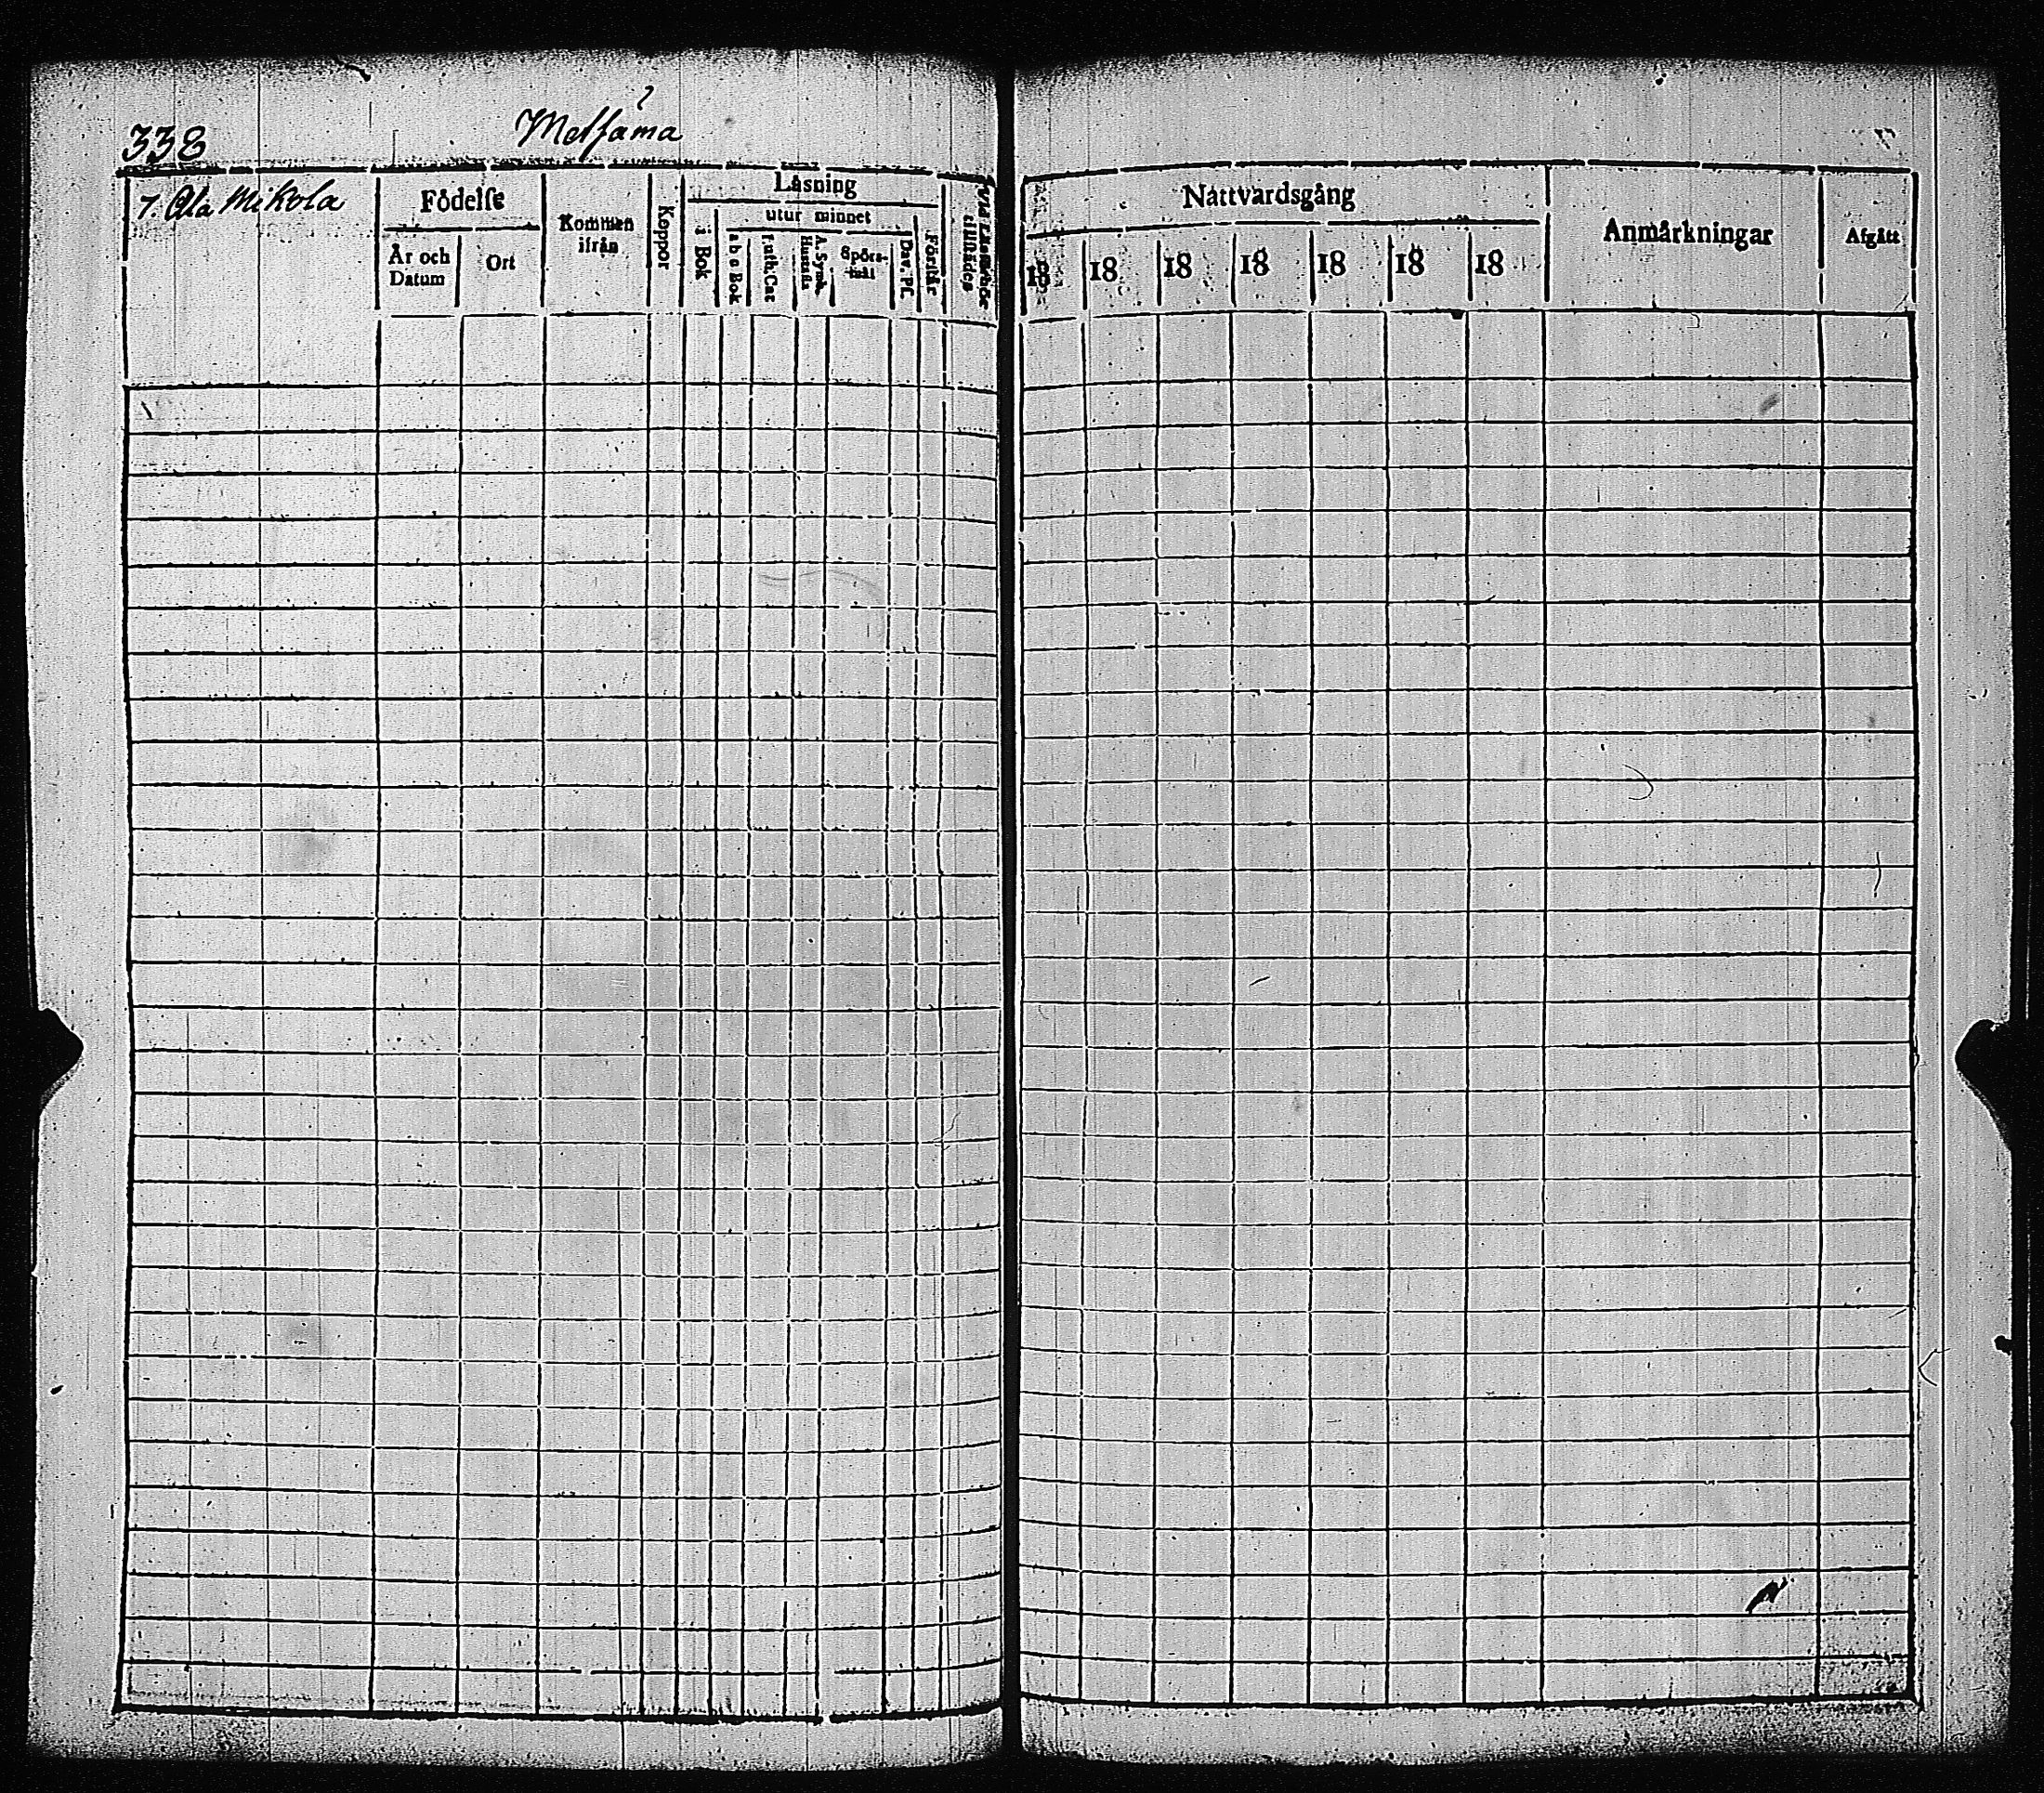 338
Metsäma
7. Ala Mikola
Födelſe
År och Datum
Ort
Kommen ifrån
Koppor
Läsning
i Bok
utur minnet
a b c Bok
Luth. Cat
A. Symb. Hustafla
Spörsmål
Dav. Pſ.
Förſtår
Nattvardsgång
18 18 18 18 18 18 18
Anmärkningar
Afgått